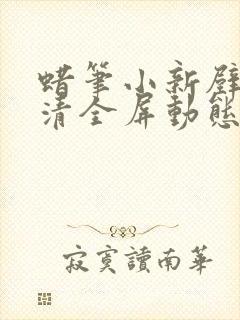 蜡筆小新壁
清全屏動態
寂寞讀南華